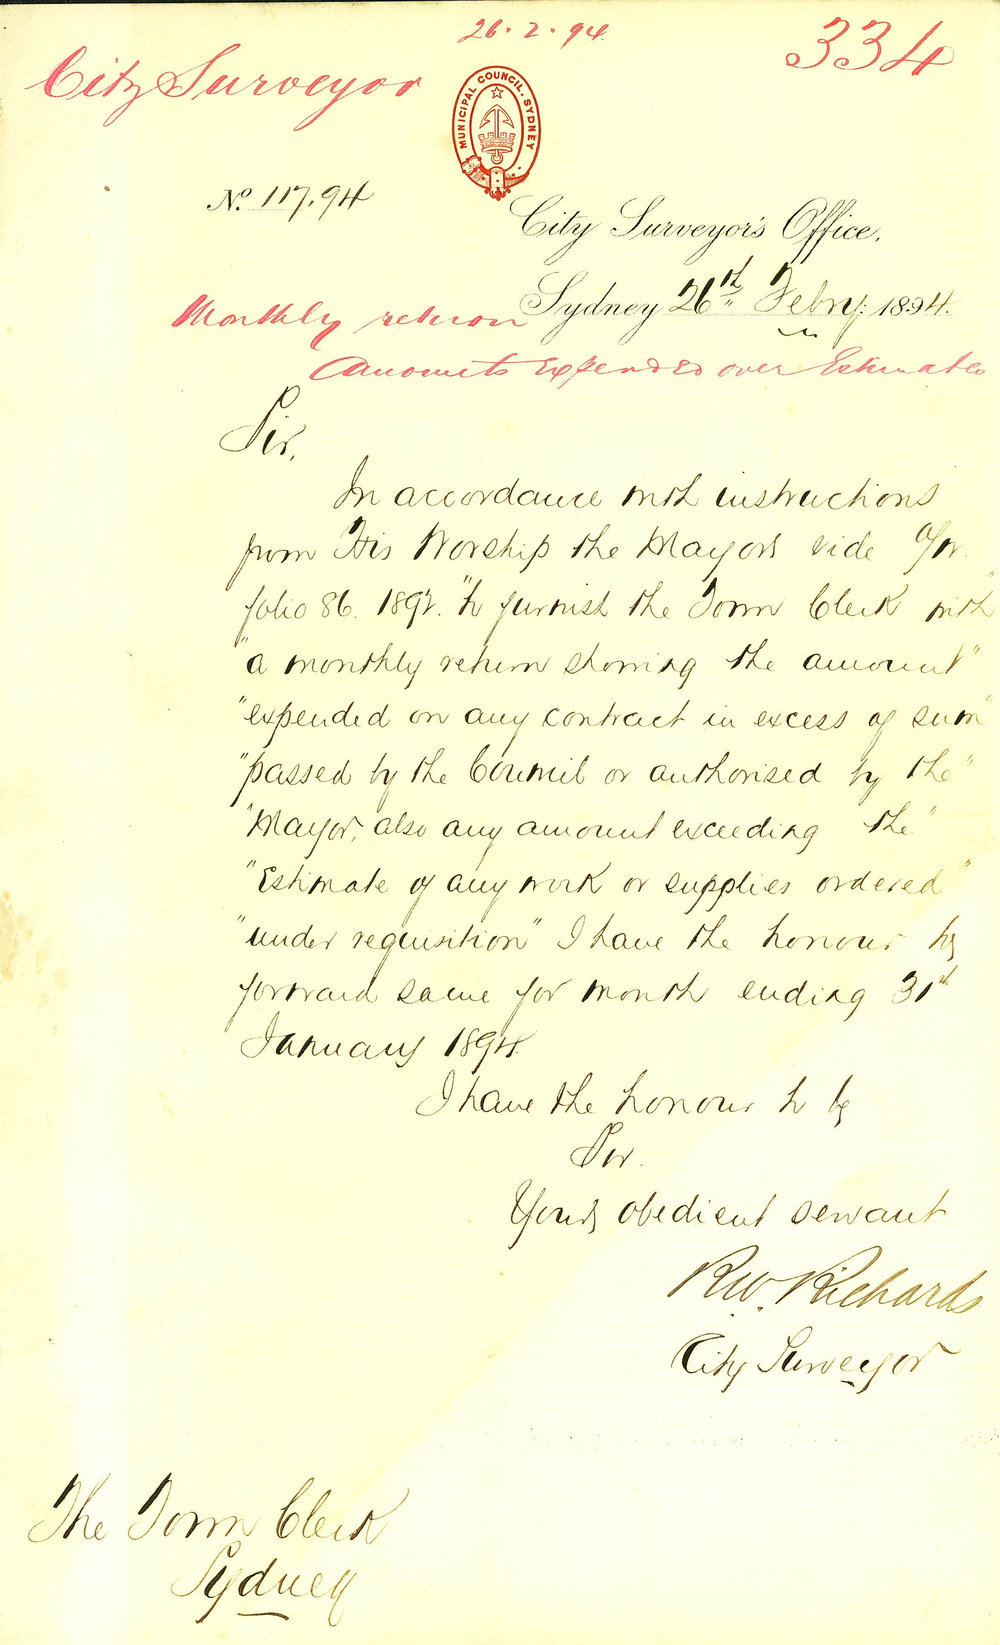 26. 2. 94.
334
City Surveyor
MUNICIPAL COUNCIL. SYDNEY
No. 117.94
City Surveyor's Office,
Sydney 26th Febry: 1894.
Monthly return
Amounts Expended over Estimates
Sir,
In accordance with instructions
from His Worship the Mayor vide
folio 86. 1892. "to furnish the Town Clerk with"
"a monthly return showing the amount"
"expended on any contract in excess of sum"
"passed by the Council or authorised by the"
"Mayor, also any amount exceeding the"
"Estimate of any work or supplies ordered"
"under requisition" I have the honour to
forward same for month ending 31st
January 1894.
I have the honour to be
Sir.
Your obedient servant
R.W. Richards
City Surveyor
The Town Clerk
Sydney